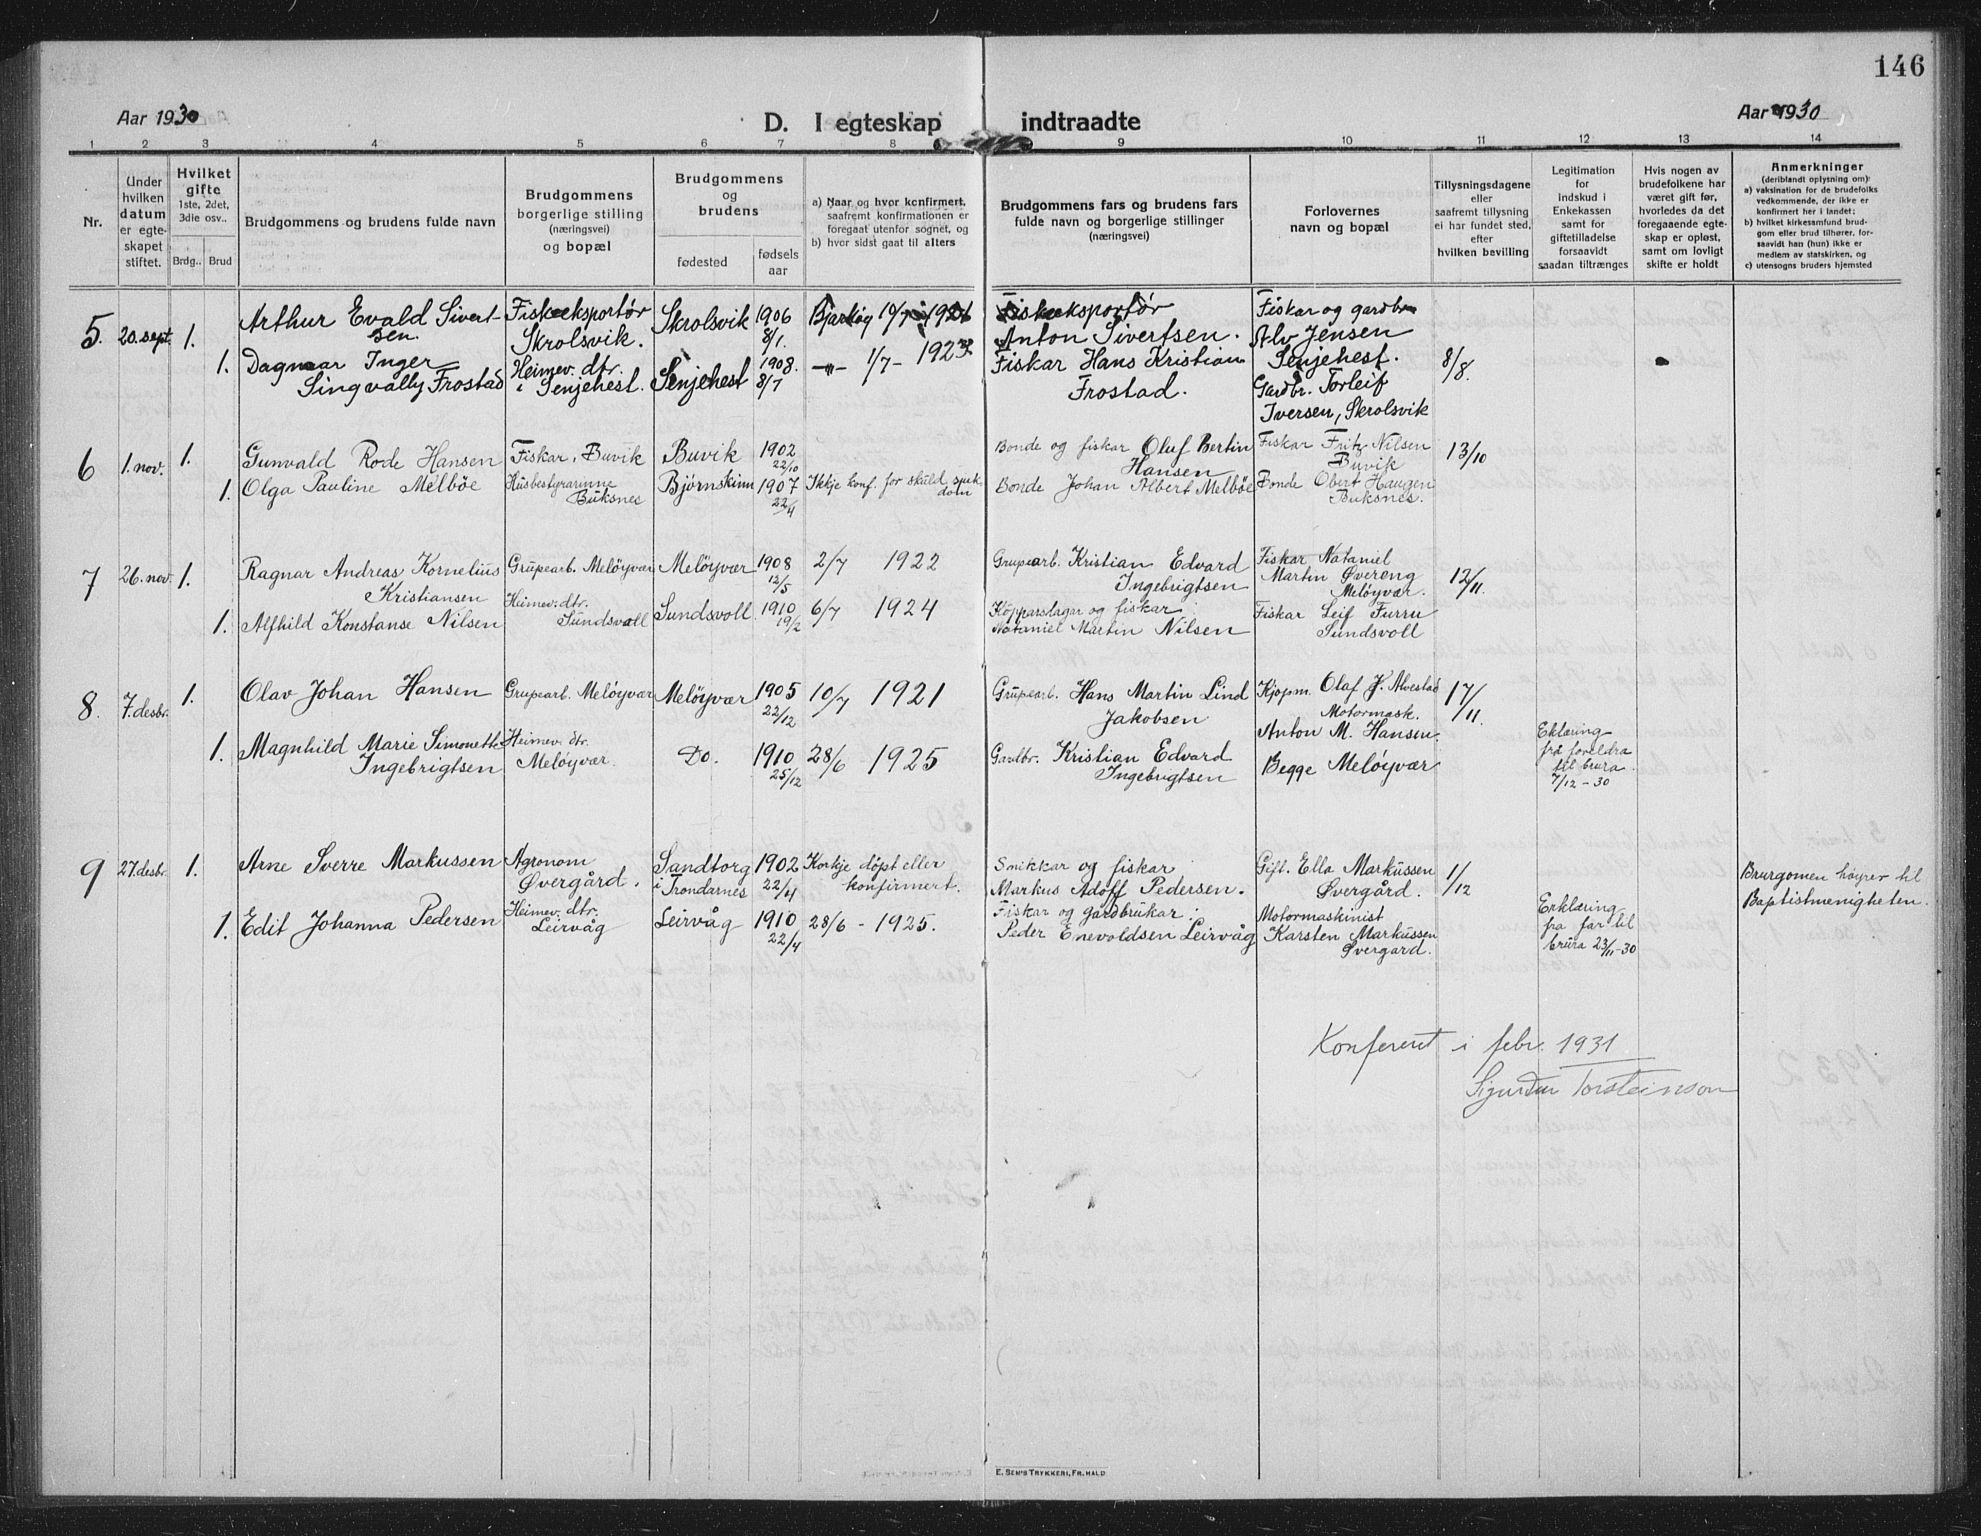 146
Aar 1930
D. I egteskap indtraadte
Aar 1930
1 2 3 4 5 6 7 8 9 10 11 12 13 14
Nr.
Under hvilken datum er egteskapet stiftet.
Hvilket gifte 1ste, 2det, 3die osv..
Brdg.. Brud
Brudgommens og brudens fulde navn
Brudgommens borgerlige stilling (næringsvei) og bopæl
Brudgommens og brudens
fødested
fødsels aar
a) Naar og hvor konfirmert, saafremt konfirmationen er foregaat utenfor sognet, og
b) hvor sidst gaat til alters
Brudgommens fars og brudens fars fulde navn og borgerlige stillinger (næringsvei)
Forlovernes navn og bopæl
Tillysningsdagene eller saafremt tillysning ei har fundet sted, efter hvilken bevilling
Legitimation for Indskud i Enkekassen samt for giftetilladelse forsaavidt saadan tiltrænges
Hvis nogen av brudefolkene har været gift før, hvorledes da det foregaaende egteskap er opløst, samt om lovligt skifte er holdt
Anmerkninger (deriblandt oplysning om):
a) vaksination for de brudefolks vedkommende, der ikke er konfirmert her i landet;
b) hvilket kirkesamfund brudgom eller brud tilhører, forsaavidt han (hun) ikke er medlem av statskirken, og
c) utensogns bruders hjemsted
5. 20. sept. 1. Arthur Evald Sivertsen Fiskeeksportør Skrolsvik. Skrolsvik 1906 8/1. Bjarkøy 10/7 1921 Fiskeeksportør Anton Sivertsen. Fiskar og gardbr Alv Jensen Senjehest. 8/8.
1. Dagmar Inger Singvally Frostad Heimev. dtr. i Senjehest. Senjehest 1908. 8/7 -"- 1/7 - 1923 Fiskar Hans Kristian Frostad. Gardbr. Torleif Iversen, Skrolsvik
6 1. nov. 1. Gunvald Rode Hansen Fiskar, Buvik Buvik 1902 22/10 Bonde og fiskar Oluf Bertin Hansen Fiskar Fritz Nilsen Buvik 13/10
1. Olga Pauline Melbøe Husbestyrarinne Buksnes Bjørnskinn 1907 22/4 Ikkje konf. for skuld sjukdom Bonde Johan Albert Melbøe Bonde Obert Haugen Buksnes.
7 26. nov. 1. Ragnar Andreas Kornelius Kristiansen Grupearb. Meløyvær Meløyvær 1908 12/5 2/7 1922 Gruparb. Kristian Edvard Ingebrigtsen Fiskar Nataniel Martin Øvereng Meløyvær. 12/11.
1. Alfhild Konstanse Nilsen Heimev. dtr. Sundsvoll Sundsvoll. 1910 19/2 6/7 1924 Kopparslagar og fiskar Nataniel Martin Nilsen Fiskar Leif Furru Sundsvoll
8. 7. desbr. 1. Olav Johan Hansen Grupearb. Meløyvær Meløyvær 1905 22/12 10/7 1921 Grupearb. Hans Martin Lind Jakobsen Kjøpm. Olaf J. Alvestad Motormask. Anton M. Hansen. 17/11.
1. Magnhild Marie Simonette Ingebrigtsen Heimev. dtr. Meløyvær. Do. 1910 25/12 28/6 - 1925 Gardbr. Kristian Edvard Ingebrigtsen Begge Meløyvær Erklæring frå foreldra til brura 7/12 - 30
9 27. desbr. 1. Arne Sverre Markussen Agronom Øvergård. Sandtorg i Trondarnes 1902 22/4 Korkje døpt eller konfirmert. Snikkar og fiskar Markus Adolf Pedersen. Gift. Ella Markussen Øvergård. 1/12 Brurgomen høyrer til Baptistmenigheten.
1. Edit Johanna Pedersen Heimev. dtr. Leirvåg Leirvåg 1910 22/4 28/6 - 1925. Fiskar og gardbrukar Peder Enevoldsen Leirvåg Motormaskinist Karsten Markussen Øvergard. Erklæring fra far til brura 23/11-30
Konferert i febr. 1931
Sigurdur Torsteinson
E. SEM'S TRYKKERI, FR.HALD